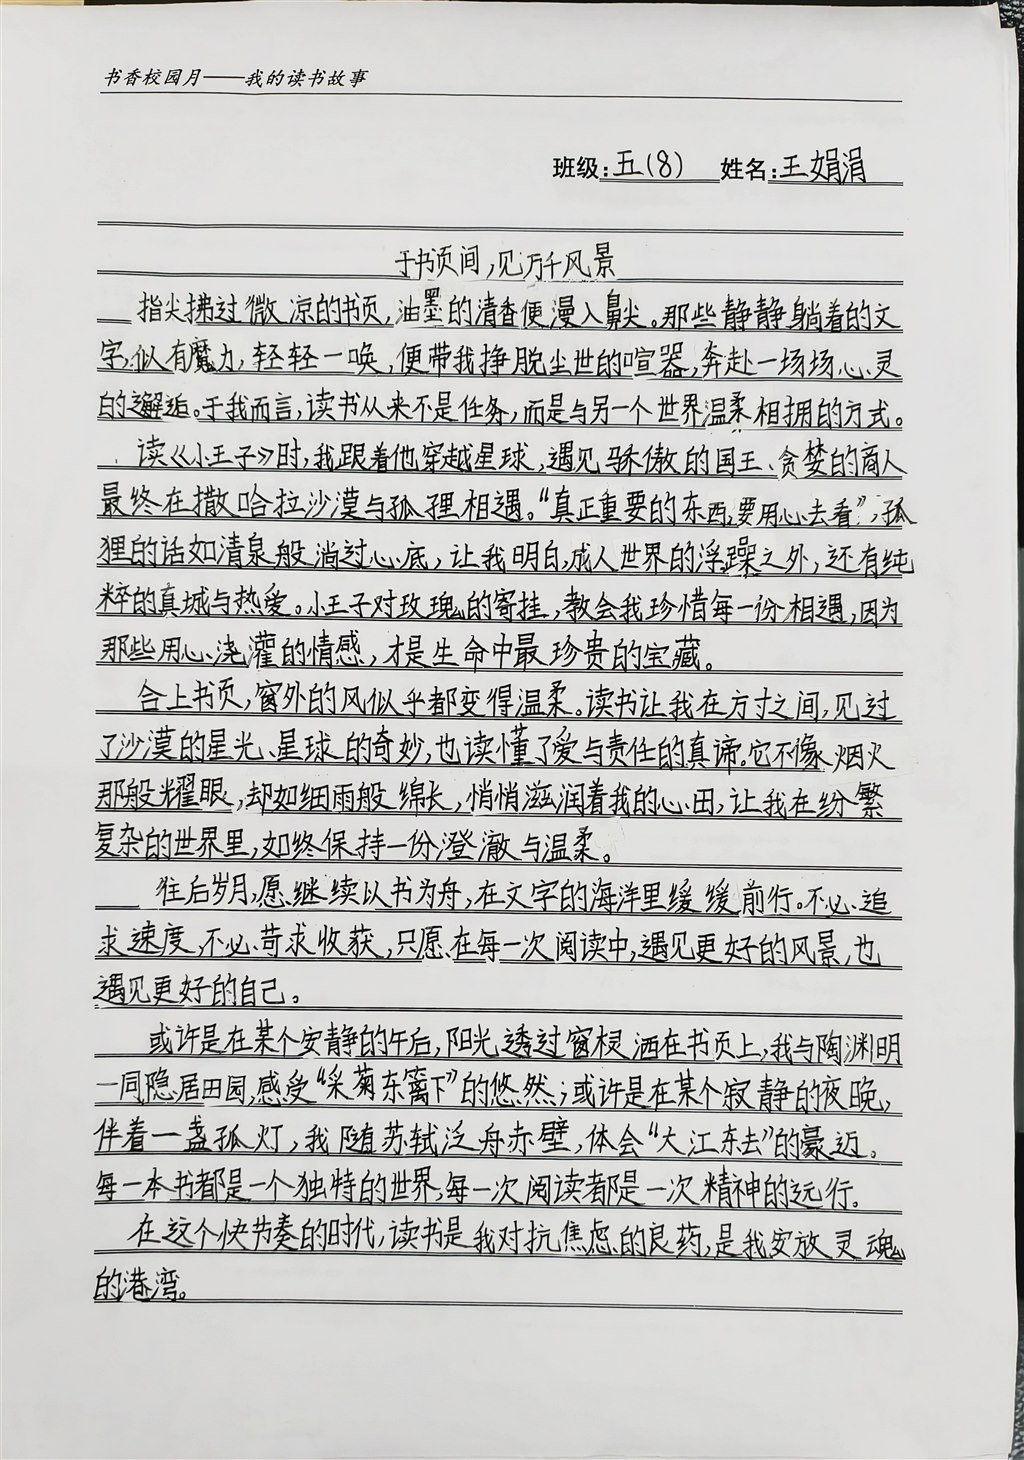 书香校园月——我的读书故事
班级:五(8) 姓名:王娟涓
于书页间,见万千风景
指尖拂过微凉的书页,油墨的清香便漫入鼻尖。那些静静躺着的文
字,似有魔力,轻轻一唤,便带我挣脱尘世的喧嚣,奔赴一场场心灵
的邂逅。于我而言,读书从来不是任务,而是与另一个世界温柔相拥的方式。
读《小王子》时,我跟着他穿越星球,遇见骄傲的国王、贪婪的商人
最终在撒哈拉沙漠与孤狸相遇。“真正重要的东西,要用心去看”,孤
狸的话如清泉般淌过心底,让我明白,成人世界的浮躁之外,还有纯
粹的真城与热爱。小王子对玫瑰的寄挂,教会我珍惜每一份相遇,因为
那些用心浇灌的情感,才是生命中最珍贵的宝藏。
合上书页,窗外的风似乎都变得温柔。读书让我在方寸之间,见过
了沙漠的星光、星球的奇妙,也读懂了爱与责任的真谛。它不像烟火
那般耀眼,却如细雨般绵长,悄悄滋润着我的心田,让我在纷繁
复杂的世界里,如终保持一份澄澈与温柔。
往后岁月,愿继续以书为舟,在文字的海洋里缓缓前行。不必追
求速度,不必苛求收获,只愿在每一次阅读中,遇见更好的风景,也
遇见更好的自己。
或许是在某个安静的午后,阳光透过窗棂洒在书页上,我与陶渊明
一同隐居田园,感受“采菊东篱下”的悠然;或许是在某个寂静的夜晚,
伴着一盏孤灯,我随苏轼泛舟赤壁,体会“大江东去”的豪迈。
每一本书都是一个独特的世界,每一次阅读都是一次精神的远行。
在这个快节奏的时代,读书是我对抗焦虑的良药,是我安放灵魂
的港湾。